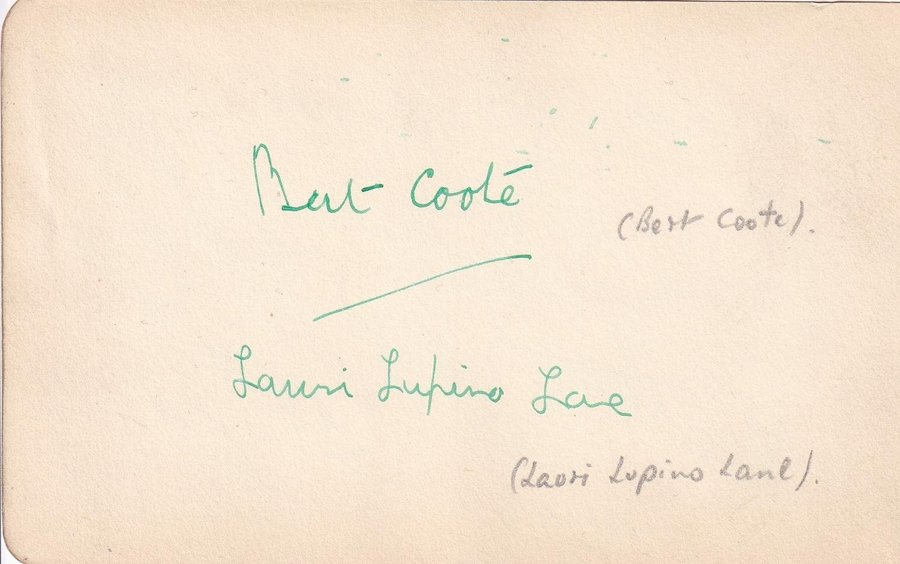 Bert Coote
(Bert Coote).
Lauri Lupino Lane
(Lauri Lupino Lane).